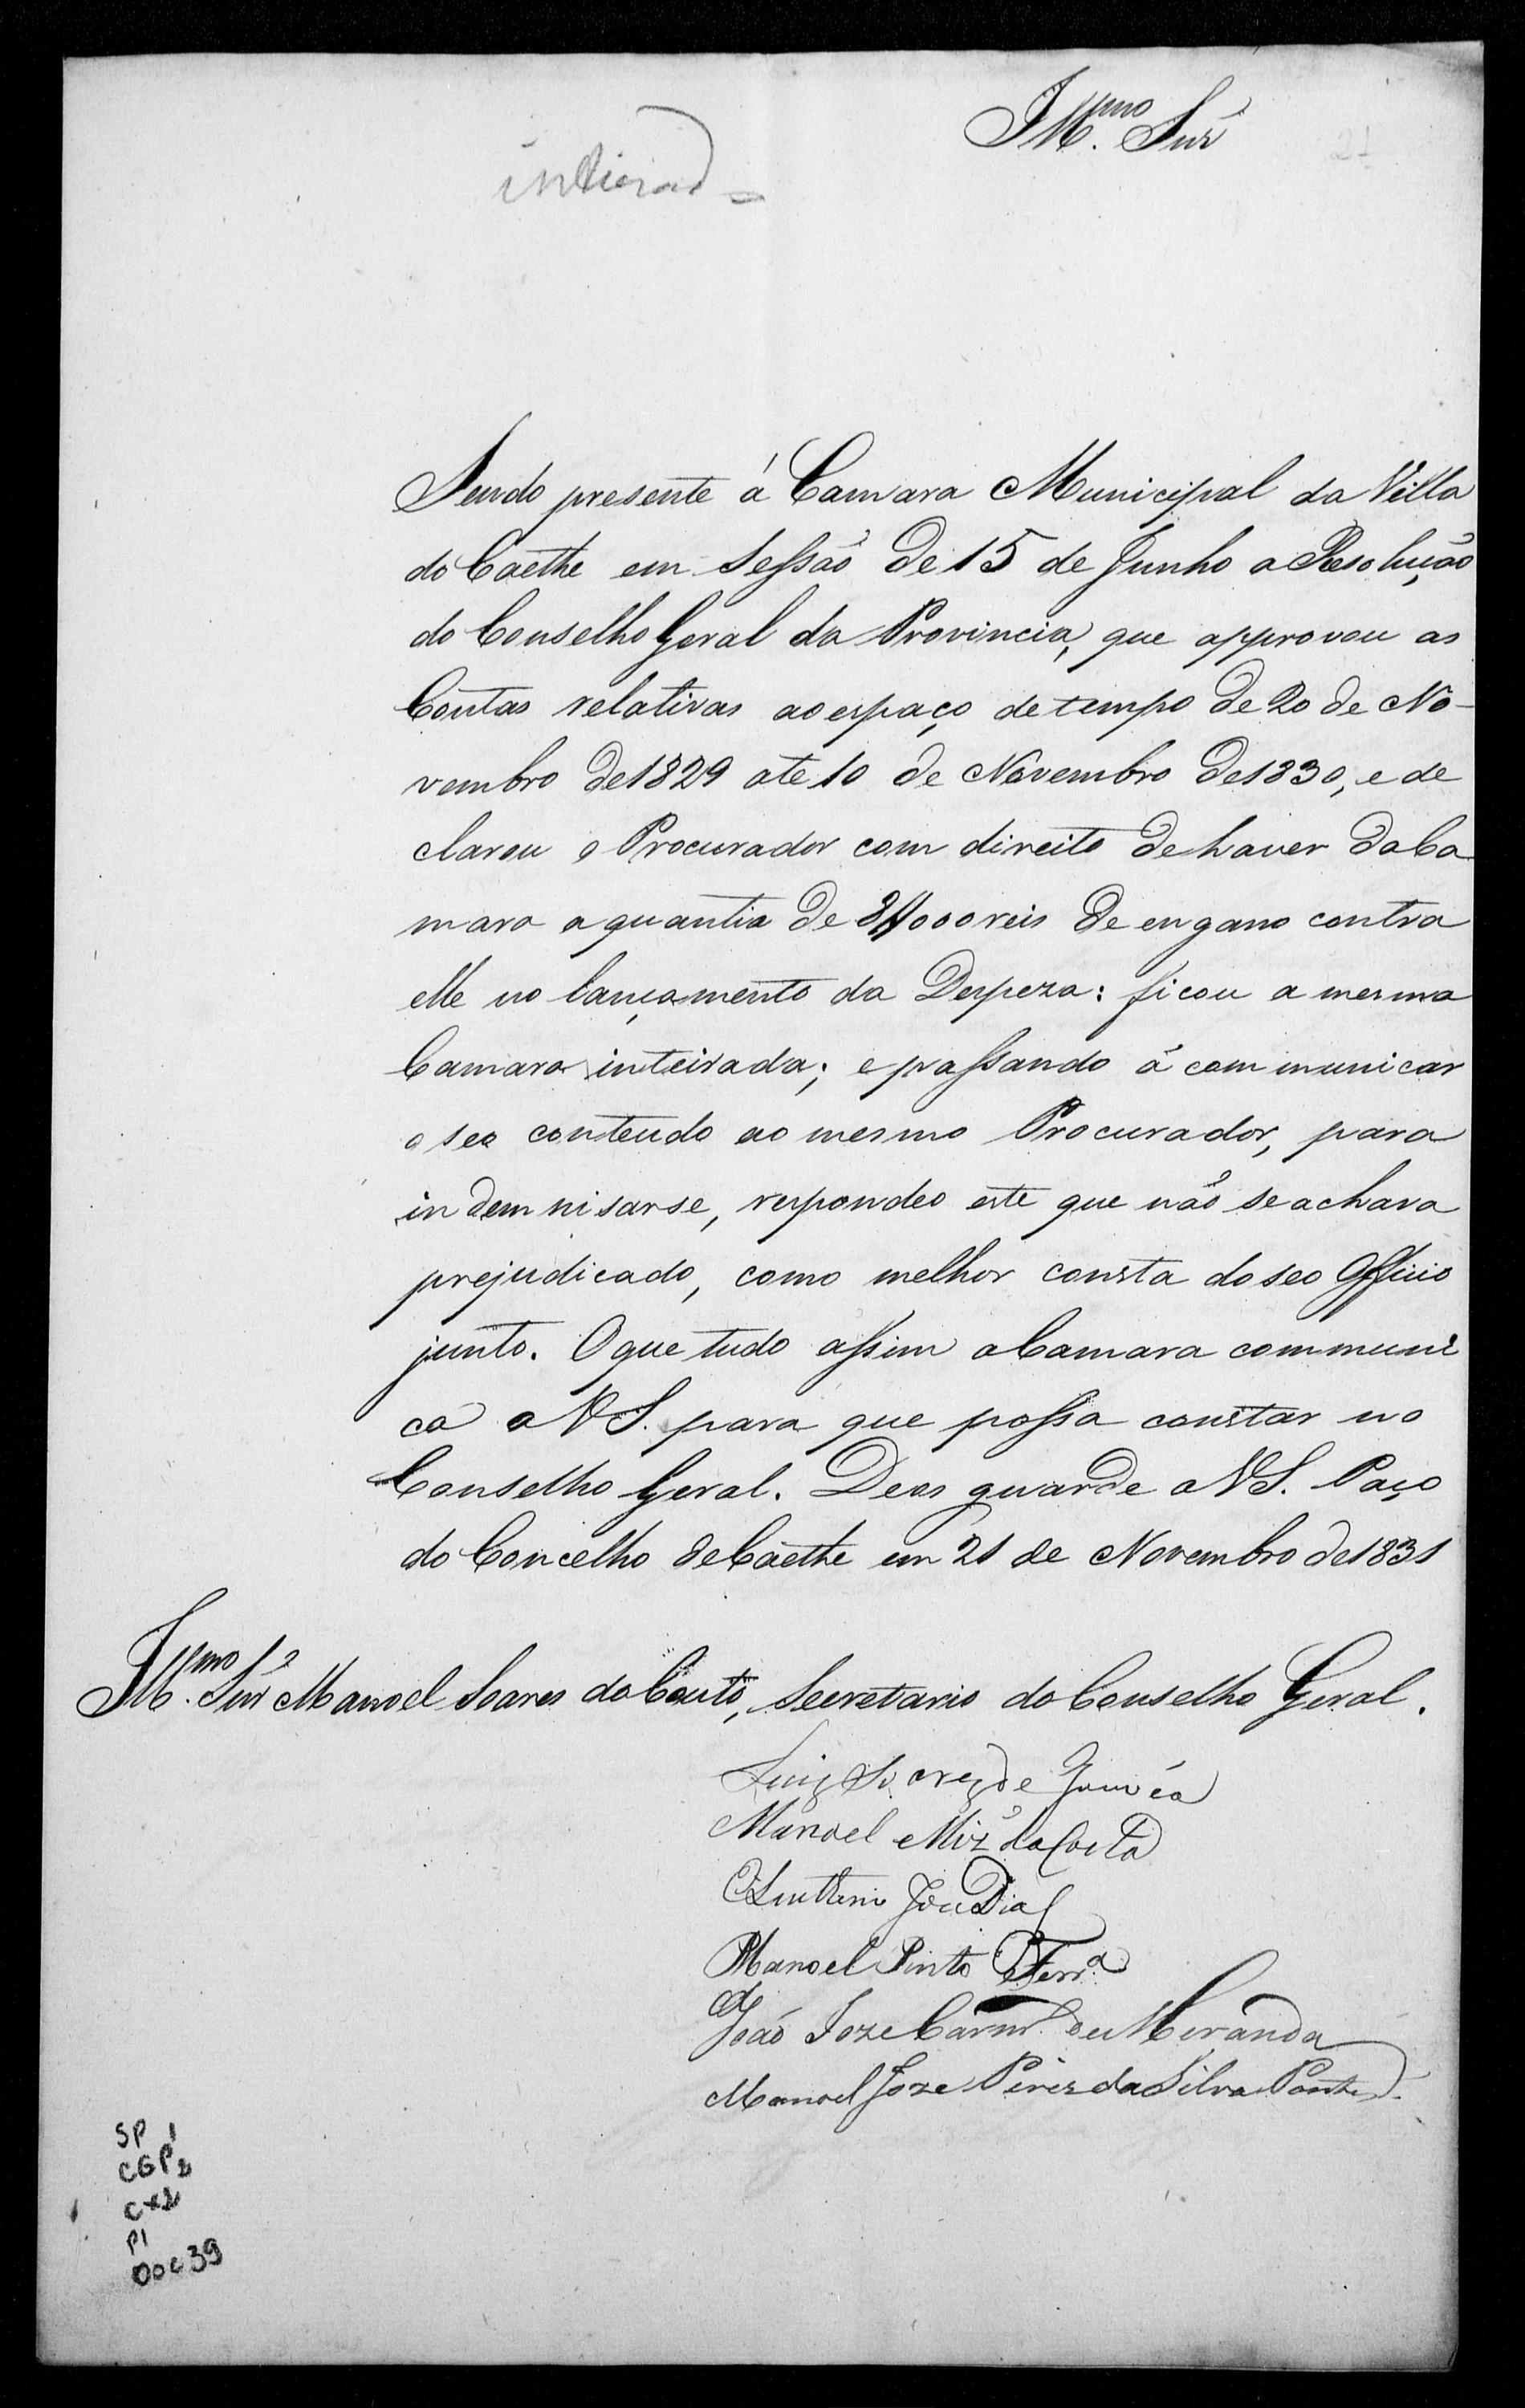 Illmo. Snr
21
inteirad
Sendo presente á Camara Municipal da Villa
do Caethe em Sessão de 15 de Junho a Resolução
do Conselho Geral da Provincia, que approvou as
Contas relativas ao espaço de tempo de 20 de No-
vembro de 1829 ate 10 de Novembro de 1830, e de
clarou o Procurador com direito de haver da Ca
mara a quantia de reis de engano contra
elle no lançamento da Despeza: ficou a mesma
Camara inteirada; e passando á communicar
o seo conteudo ao mesmo Procurador, para
indemnisarse, respondeo este que não se achava
prejudicado, como melhor consta do seo Officio
junto. O que tudo assim a Camara communi
ca a VS. para que possa constar no
Conselho Geral. Deos guarde a VS. Paço
do Concelho de Caethe em 21 de Novembro de 1831
Illmo. Snr Manoel Soares do Couto, Secretario do Conselho Geral.
Luiz de Gouvéa
Manoel Miz da Costa
Dias
Manoel Pinto Ferra
João Joze de Meranda
Manoel Joze Pires da Silva Pontes
SP 1
CGP 2
CX2
P1
DOC 39